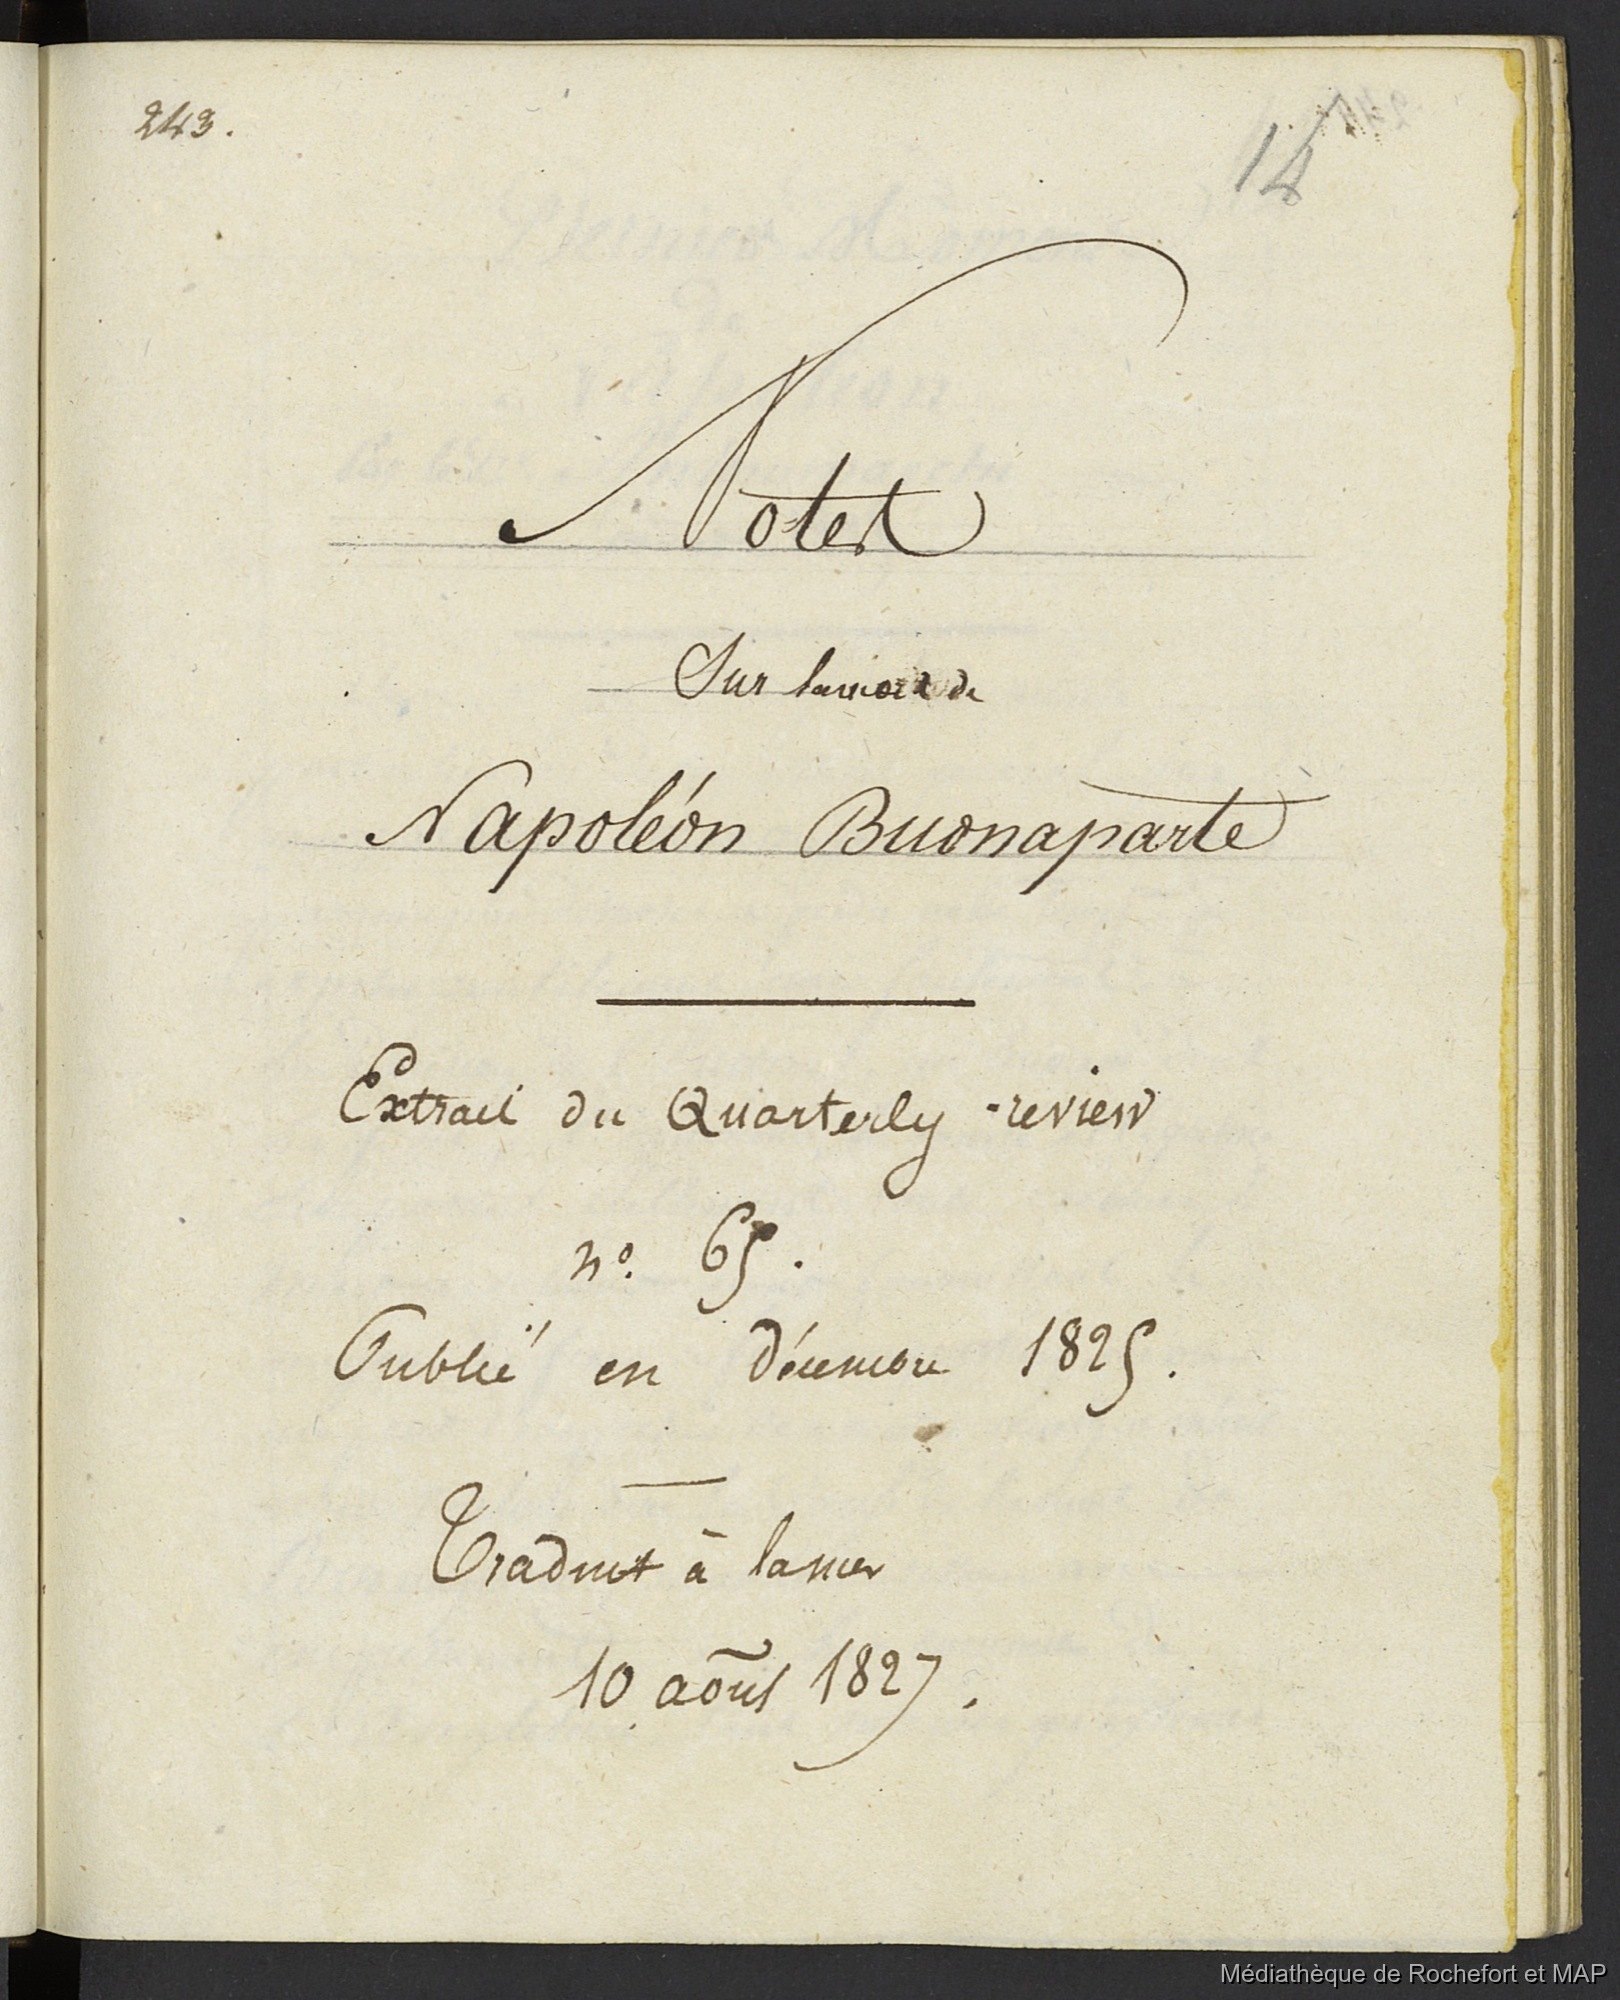 243.
14
Notes
Sur la mort de
Napoléon Buonaparte
Extrait du Quarterly-review
nº. 65.
Publié en décembre 1825.
Traduit à la mer
10 août 1827.
Médiathèque de Rochefort et MAP